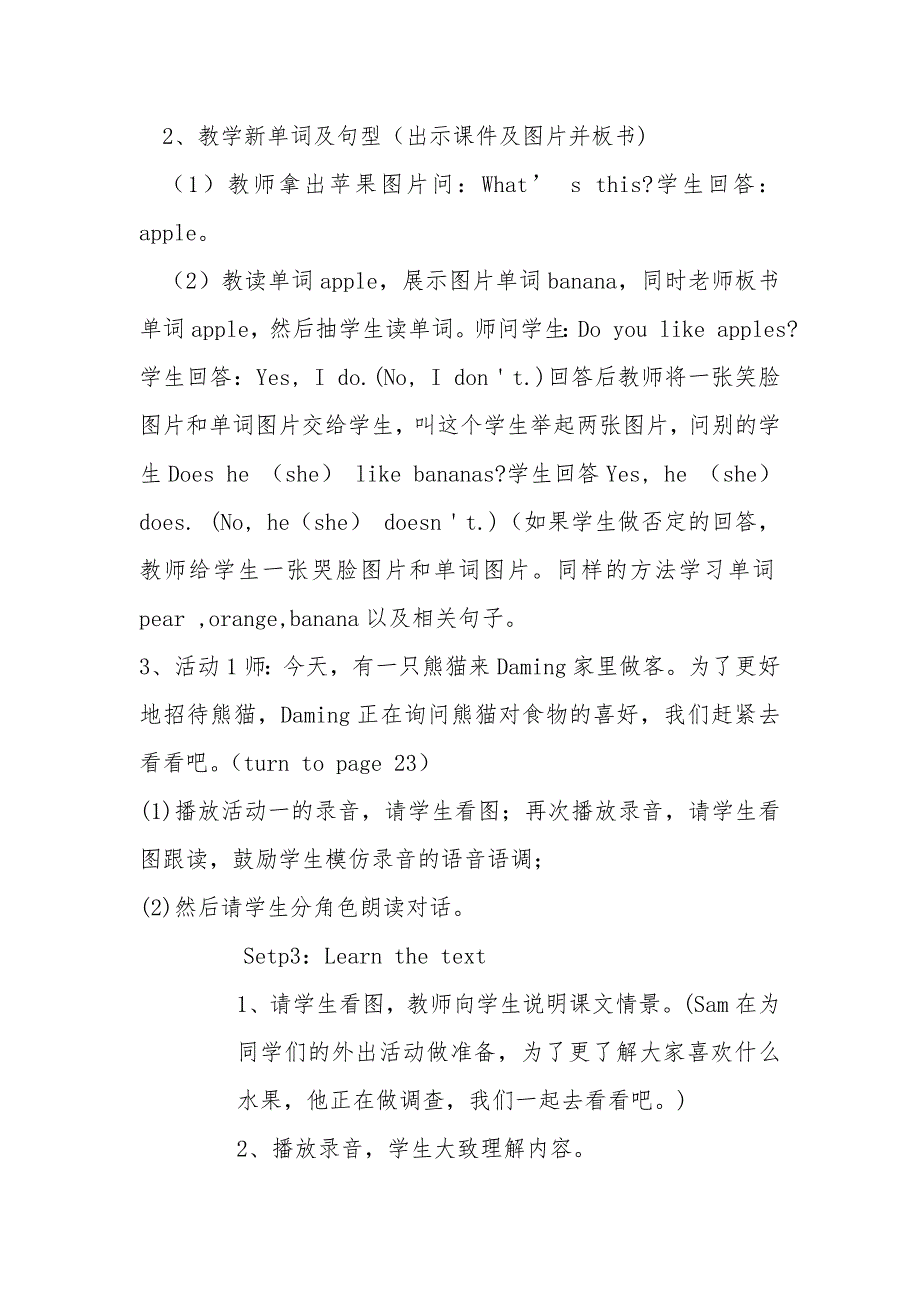 2、教学新单词及句型（出示课件及图片并板书)
（1）教师拿出苹果图片问：What’ s this?学生回答：
apple。
（2）教读单词apple，展示图片单词banana，同时老师板书
单词apple，然后抽学生读单词。师问学生：Do you like apples?
学生回答：Yes, I do.(No, I don't.)回答后教师将一张笑脸
图片和单词图片交给学生，叫这个学生举起两张图片，问别的学
生Does he （she） like bananas?学生回答Yes, he （she）
does. (No, he（she） doesn't.)（如果学生做否定的回答，
教师给学生一张哭脸图片和单词图片。同样的方法学习单词
pear ,orange,banana以及相关句子。
3、活动1师：今天，有一只熊猫来Daming家里做客。为了更好
地招待熊猫，Daming正在询问熊猫对食物的喜好，我们赶紧去
看看吧。（turn to page 23）
(1)播放活动一的录音，请学生看图；再次播放录音，请学生看
图跟读，鼓励学生模仿录音的语音语调；
(2)然后请学生分角色朗读对话。
Setp3：Learn the text
1、请学生看图，教师向学生说明课文情景。(Sam在为
同学们的外出活动做准备，为了更了解大家喜欢什么
水果，他正在做调查，我们一起去看看吧。)
2、播放录音，学生大致理解内容。